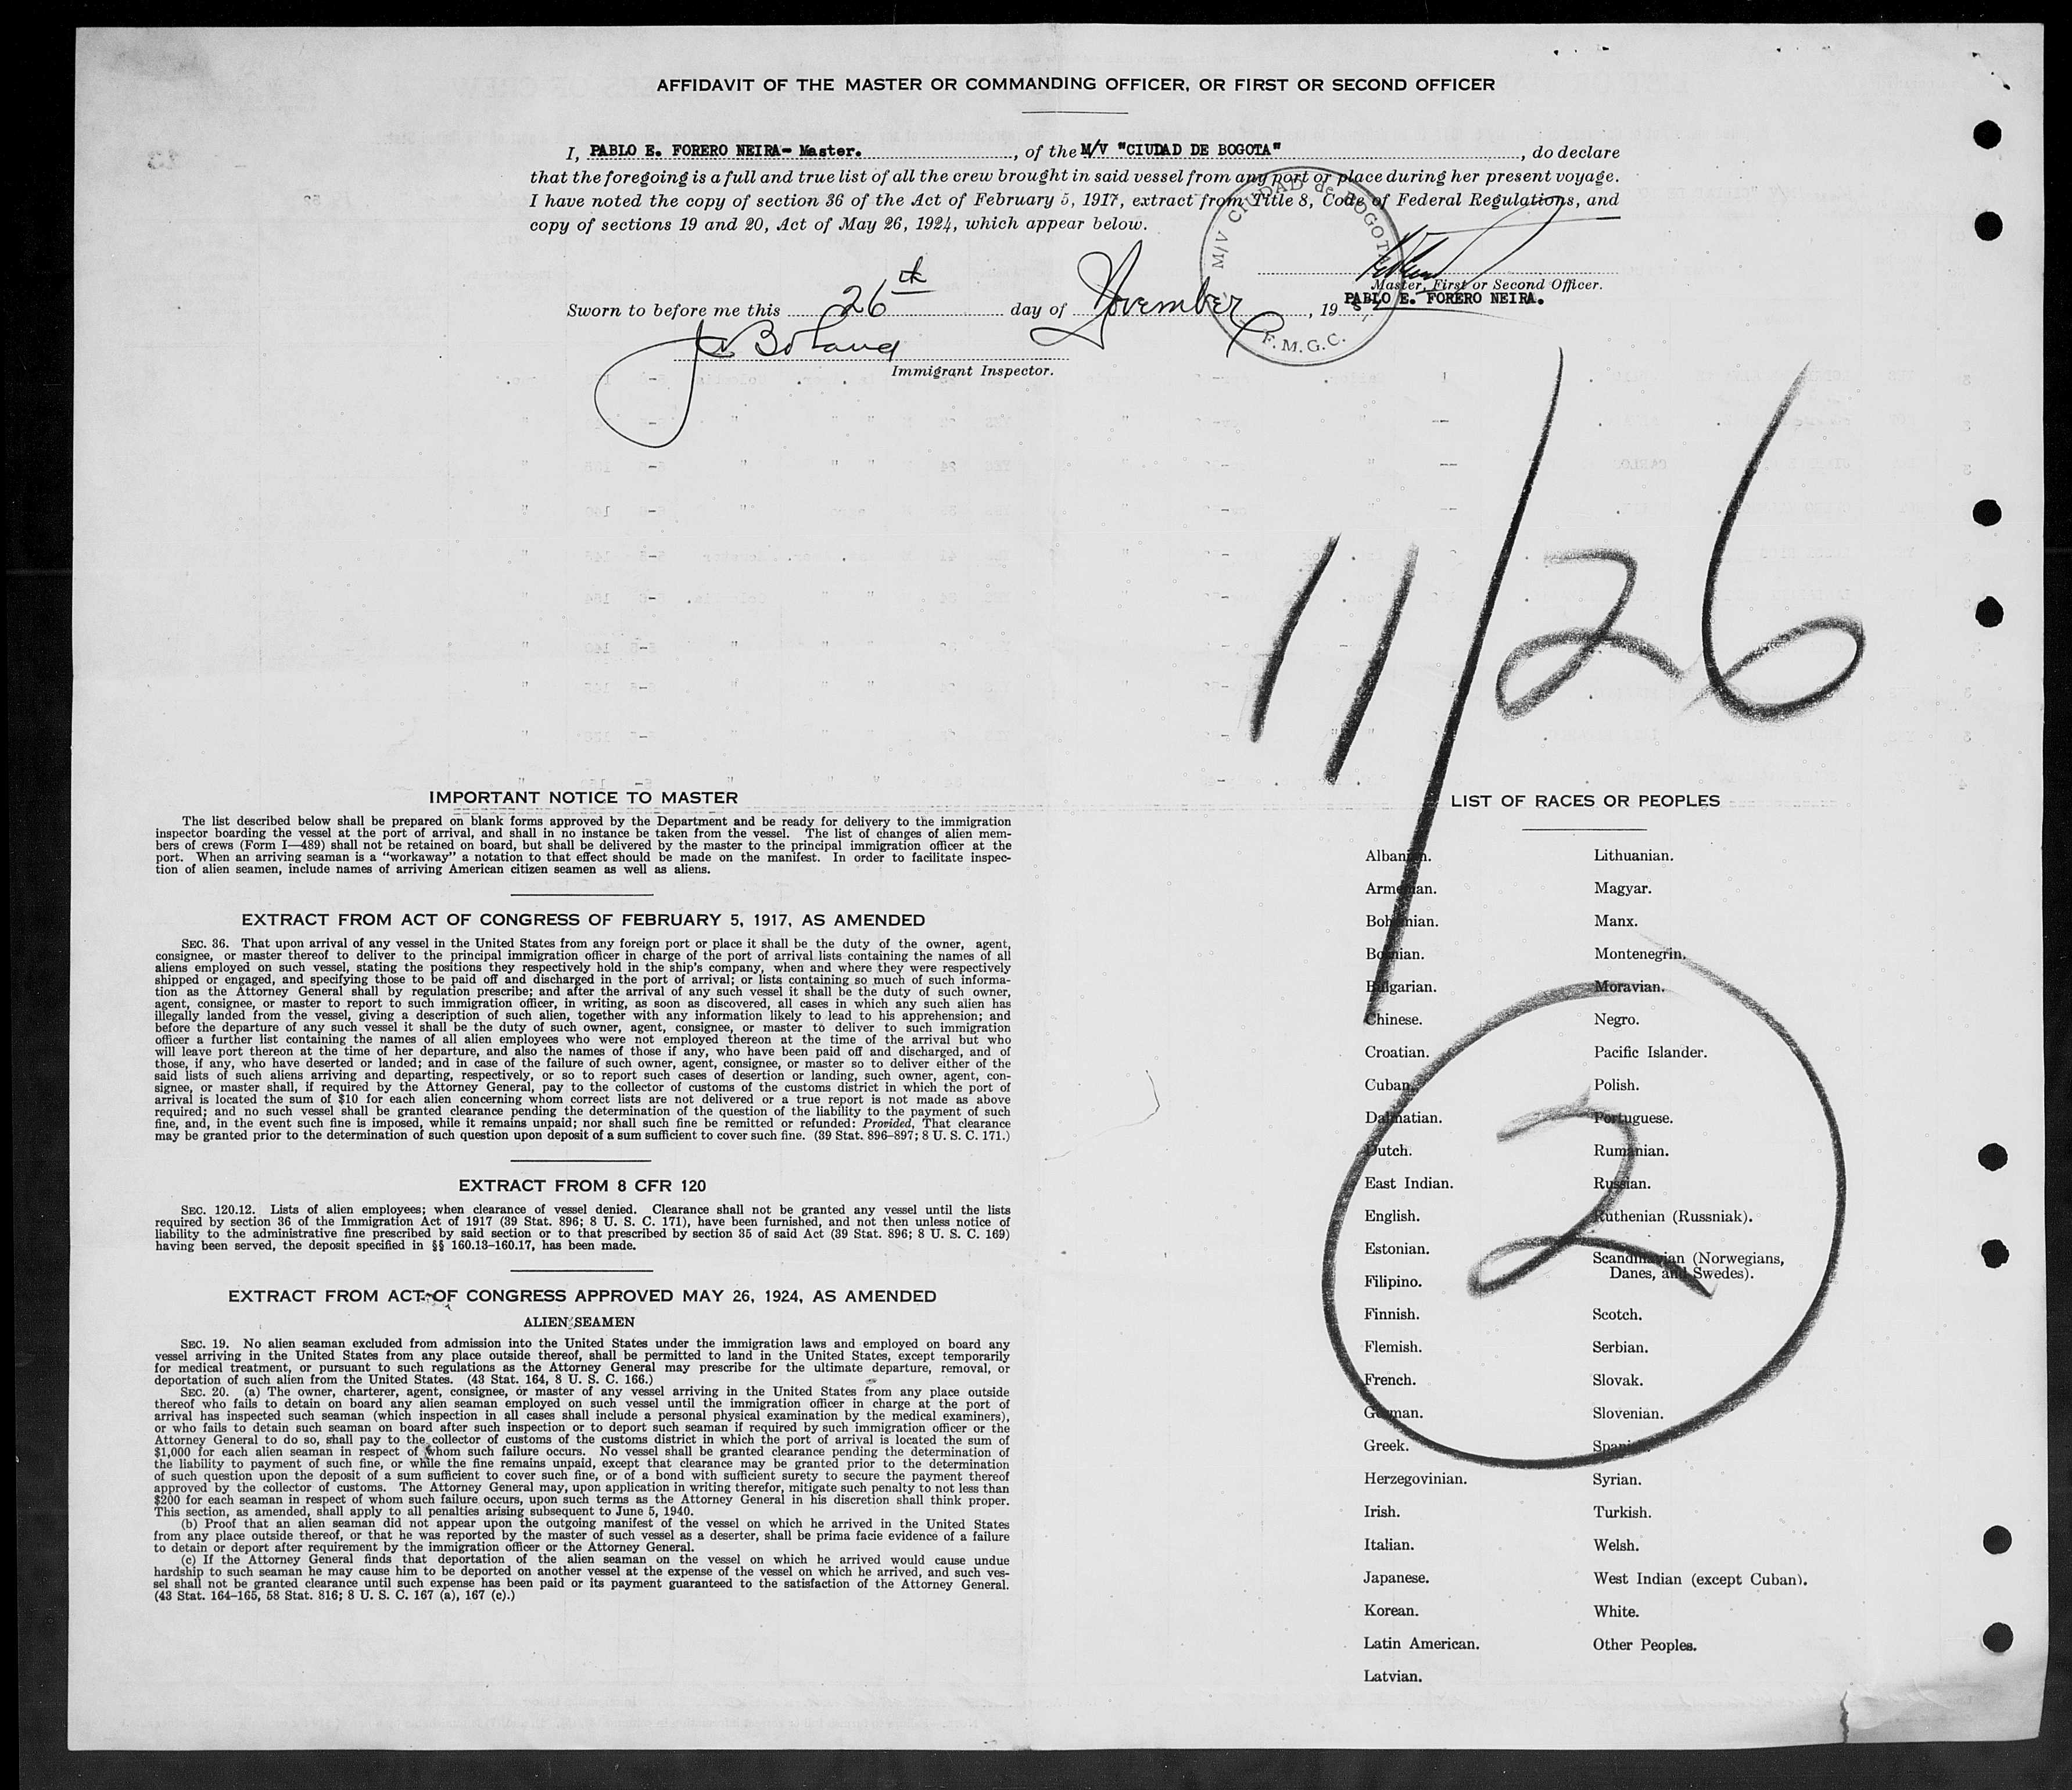 AFFIDAVIT OF THE MASTER OR COMMANDING OFFICER, OR FIRST OR SECOND OFFICER
I, PABLO E. FORERO NEIRA- Master. , of the M/V "CIUDAD DE BOGOTA" , do declare
that the foregoing is a full and true list of all the crew brought in said vessel from any port or place during her present voyage.
I have noted the copy of section 36 of the Act of February 5, 1917, extract from Title 8, Code of Federal Regulations, and
copy of sections 19 and 20, Act of May 26, 1924, which appear below.
M/V CIUDAD de BOGOTA
F.M.G.C.
Master, First or Second Officer.
PABLO E. FORERO NEIRA.
Sworn to before me this 26th day of November , 195
Immigrant Inspector.
11/26
2
IMPORTANT NOTICE TO MASTER
The list described below shall be prepared on blank forms approved by the Department and be ready for delivery to the immigration
inspector boarding the vessel at the port of arrival, and shall in no instance be taken from the vessel. The list of changes of alien mem-
bers of crews (Form I—489) shall not be retained on board, but shall be delivered by the master to the principal immigration officer at the
port. When an arriving seaman is a "workaway" a notation to that effect should be made on the manifest. In order to facilitate inspec-
tion of alien seamen, include names of arriving American citizen seamen as well as aliens.
EXTRACT FROM ACT OF CONGRESS OF FEBRUARY 5, 1917, AS AMENDED
SEC. 36. That upon arrival of any vessel in the United States from any foreign port or place it shall be the duty of the owner, agent,
consignee, or master thereof to deliver to the principal immigration officer in charge of the port of arrival lists containing the names of all
aliens employed on such vessel, stating the positions they respectively hold in the ship's company, when and where they were respectively
shipped or engaged, and specifying those to be paid off and discharged in the port of arrival; or lists containing so much of such informa-
tion as the Attorney General shall by regulation prescribe; and after the arrival of any such vessel it shall be the duty of such owner,
agent, consignee, or master to report to such immigration officer, in writing, as soon as discovered, all cases in which any such alien has
illegally landed from the vessel, giving a description of such alien, together with any information likely to lead to his apprehension; and
before the departure of any such vessel it shall be the duty of such owner, agent, consignee, or master to deliver to such immigration
officer a further list containing the names of all alien employees who were not employed thereon at the time of the arrival but who
will leave port thereon at the time of her departure, and also the names of those if any, who have been paid off and discharged, and of
those, if any, who have deserted or landed; and in case of the failure of such owner, agent, consignee, or master so to deliver either of the
said lists of such aliens arriving and departing, respectively, or so to report such cases of desertion or landing, such owner, agent, con-
signee, or master shall, if required by the Attorney General, pay to the collector of customs of the customs district in which the port of
arrival is located the sum of $10 for each alien concerning whom correct lists are not delivered or a true report is not made as above
required; and no such vessel shall be granted clearance pending the determination of the question of the liability to the payment of such
fine, and, in the event such fine is imposed, while it remains unpaid; nor shall such fine be remitted or refunded: Provided, That clearance
may be granted prior to the determination of such question upon deposit of a sum sufficient to cover such fine. (39 Stat. 896-897; 8 U. S. C. 171.)
EXTRACT FROM 8 CFR 120
SEC. 120.12. Lists of alien employees; when clearance of vessel denied. Clearance shall not be granted any vessel until the lists
required by section 36 of the Immigration Act of 1917 (39 Stat. 896; 8 U. S. C. 171), have been furnished, and not then unless notice of
liability to the administrative fine prescribed by said section or to that prescribed by section 35 of said Act (39 Stat. 896; 8 U. S. C. 169)
having been served, the deposit specified in §§ 160.13-160.17, has been made.
EXTRACT FROM ACT OF CONGRESS APPROVED MAY 26, 1924, AS AMENDED
ALIEN SEAMEN
SEC. 19. No alien seaman excluded from admission into the United States under the immigration laws and employed on board any
vessel arriving in the United States from any place outside thereof, shall be permitted to land in the United States, except temporarily
for medical treatment, or pursuant to such regulations as the Attorney General may prescribe for the ultimate departure, removal, or
deportation of such alien from the United States. (43 Stat. 164, 8 U. S. C. 166.)
SEC. 20. (a) The owner, charterer, agent, consignee, or master of any vessel arriving in the United States from any place outside
thereof who fails to detain on board any alien seaman employed on such vessel until the immigration officer in charge at the port of
arrival has inspected such seaman (which inspection in all cases shall include a personal physical examination by the medical examiners),
or who fails to detain such seaman on board after such inspection or to deport such seaman if required by such immigration officer or the
Attorney General to do so, shall pay to the collector of customs of the customs district in which the port of arrival is located the sum of
$1,000 for each alien seaman in respect of whom such failure occurs. No vessel shall be granted clearance pending the determination of
the liability to payment of such fine, or while the fine remains unpaid, except that clearance may be granted prior to the determination
of such question upon the deposit of a sum sufficient to cover such fine, or of a bond with sufficient surety to secure the payment thereof
approved by the collector of customs. The Attorney General may, upon application in writing therefor, mitigate such penalty to not less than
$200 for each seaman in respect of whom such failure occurs, upon such terms as the Attorney General in his discretion shall think proper.
This section, as amended, shall apply to all penalties arising subsequent to June 5, 1940.
(b) Proof that an alien seaman did not appear upon the outgoing manifest of the vessel on which he arrived in the United States
from any place outside thereof, or that he was reported by the master of such vessel as a deserter, shall be prima facie evidence of a failure
to detain or deport after requirement by the immigration officer or the Attorney General.
(c) If the Attorney General finds that deportation of the alien seaman on the vessel on which he arrived would cause undue
hardship to such seaman he may cause him to be deported on another vessel at the expense of the vessel on which he arrived, and such ves-
sel shall not be granted clearance until such expense has been paid or its payment guaranteed to the satisfaction of the Attorney General.
(43 Stat. 164-165, 58 Stat. 816; 8 U. S. C. 167 (a), 167 (c).)
LIST OF RACES OR PEOPLES
Albanian.
Armenian.
Bohemian.
Bosnian.
Bulgarian.
Chinese.
Croatian.
Cuban.
Dalmatian.
Dutch.
East Indian.
English.
Estonian.
Filipino.
Finnish.
Flemish.
French.
German.
Greek.
Herzegovinian.
Irish.
Italian.
Japanese.
Korean.
Latin American.
Latvian.
Lithuanian.
Magyar.
Manx.
Montenegrin.
Moravian.
Negro.
Pacific Islander.
Polish.
Portuguese.
Rumanian.
Russian.
Ruthenian (Russniak).
Scandinavian (Norwegians,
Danes, and Swedes).
Scotch.
Serbian.
Slovak.
Slovenian.
Spanish.
Syrian.
Turkish.
Welsh.
West Indian (except Cuban).
White.
Other Peoples.